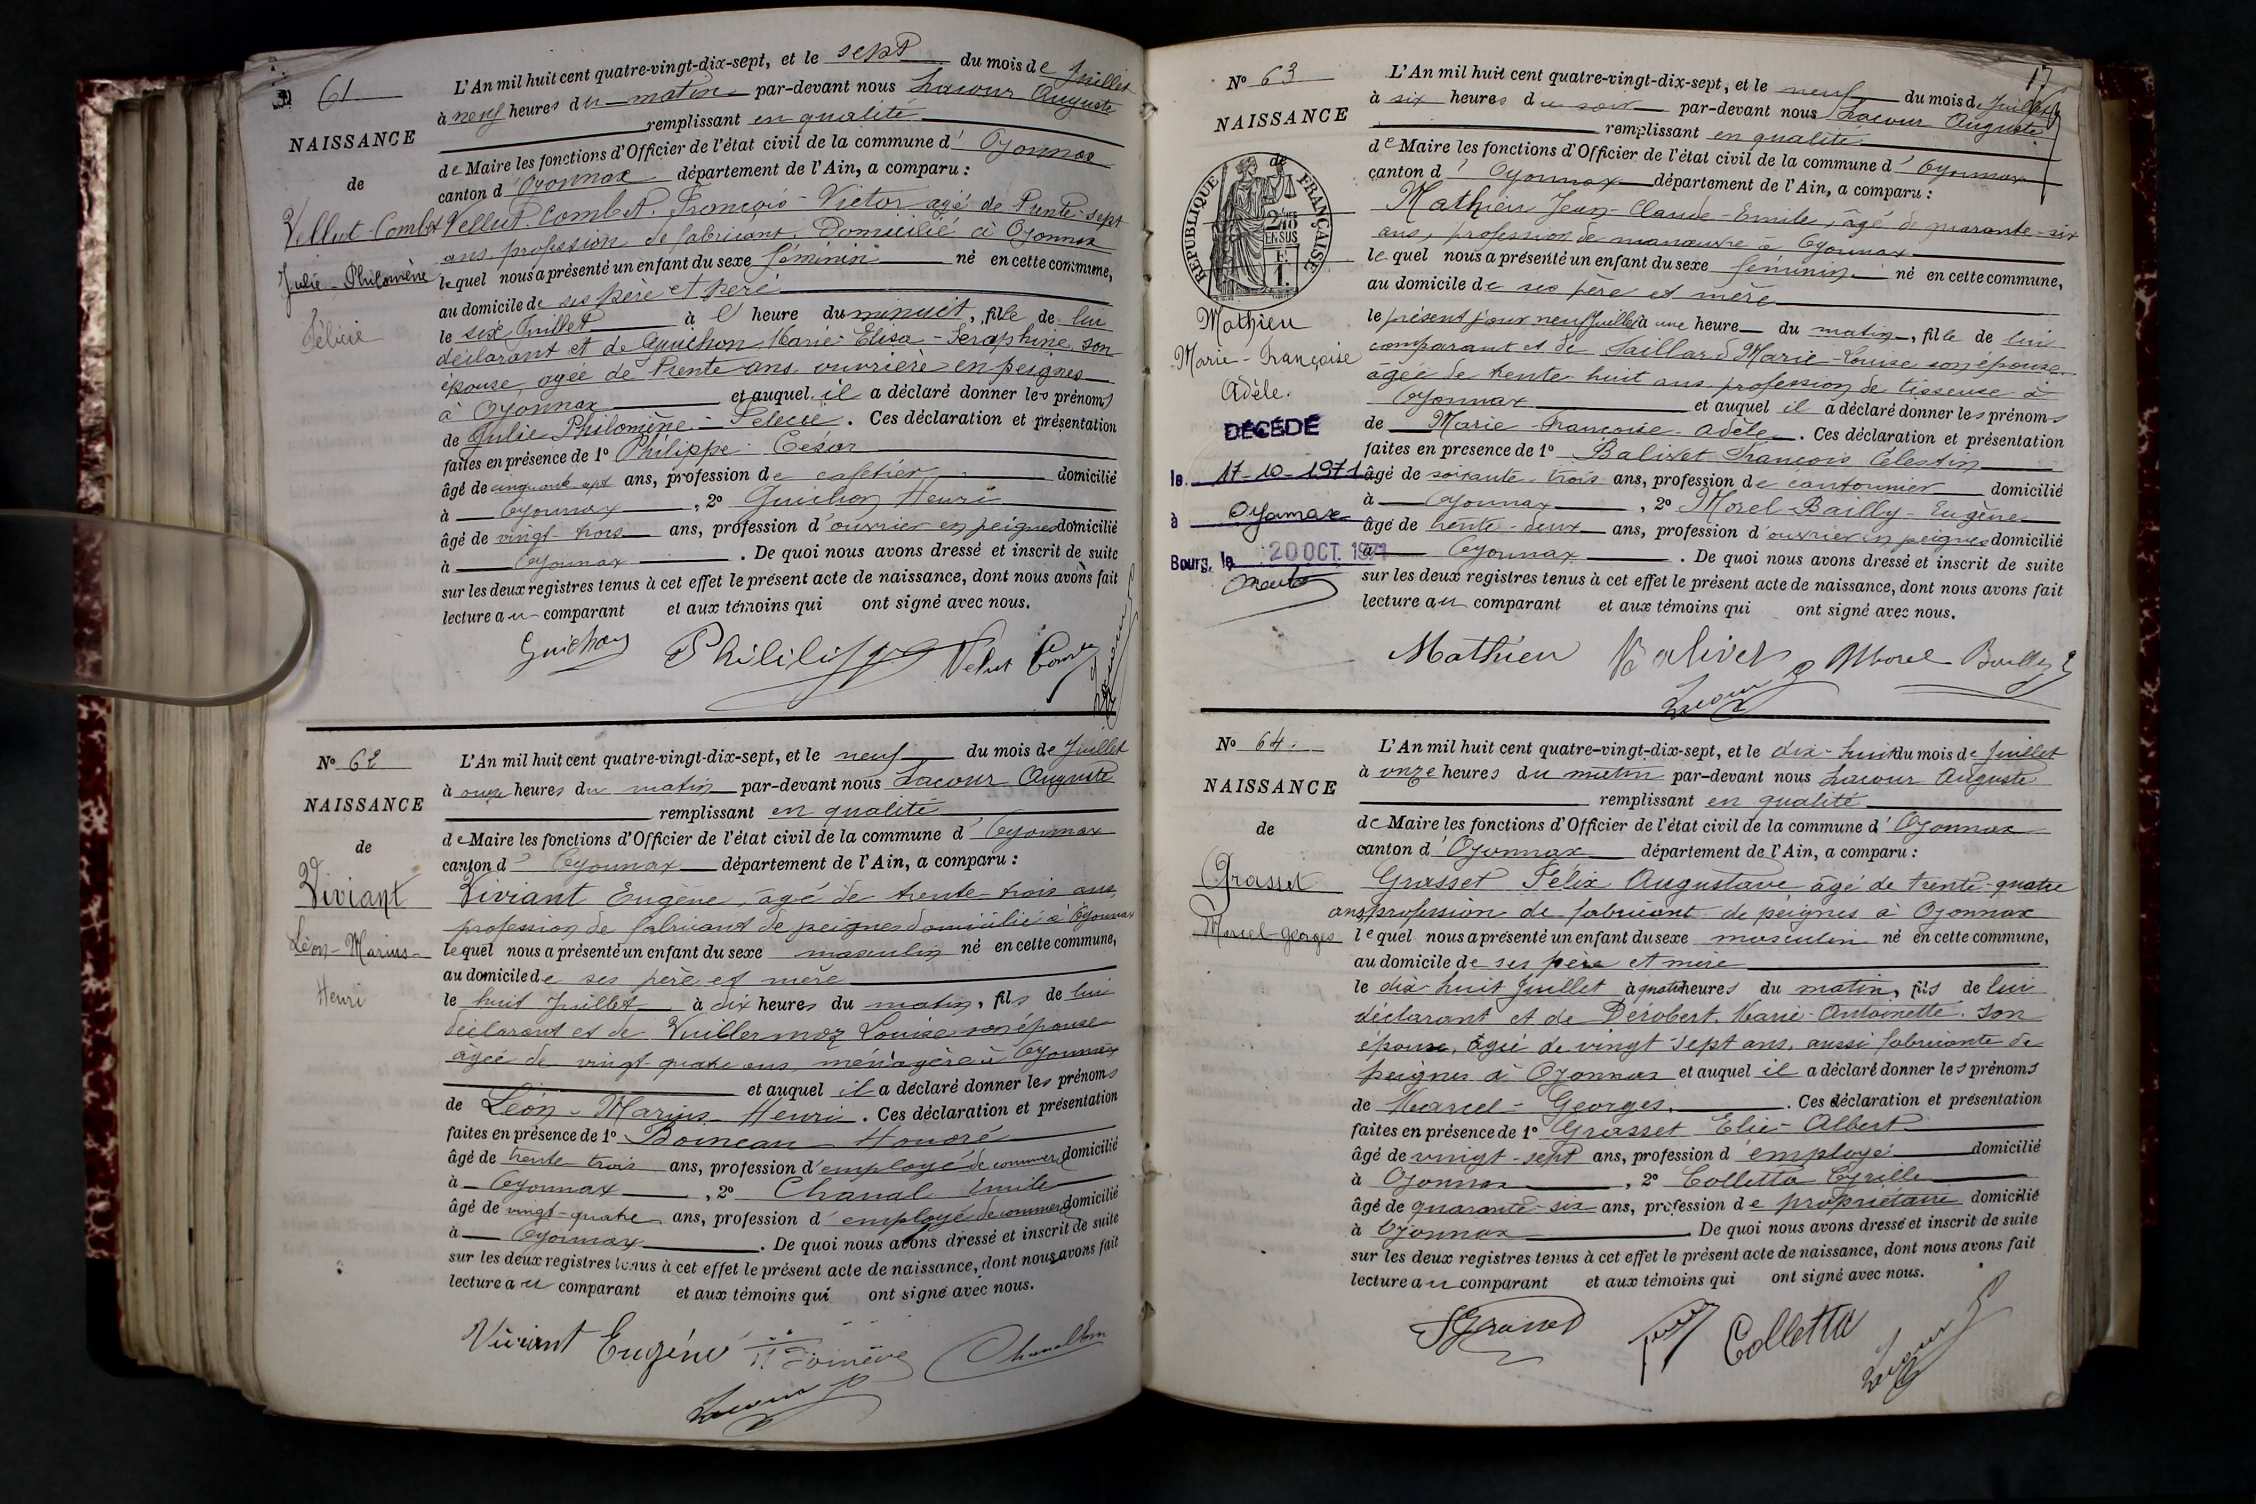 61
NAISSANCE
de
Vellut-Combet
Julie-Philomène
Félicie
L'An mil huit cent quatre-vingt-dix-sept, et le sept du mois de Juillet
à neuf heures du matin par-devant nous Lacour Auguste
remplissant en qualité
de Maire les fonctions d'Officier de l'état civil de la commune d'Oyonnax
canton d'Oyonnax département de l'Ain, a comparu :
Vellut-Combet François-Victor agé de trente-sept
ans profession de fabricant Domicilié à Oyonnax
lequel nous a présenté un enfant du sexe féminin né en cette commune,
au domicile de ses père et
le six Juillet à heure du minuit, fille de lui
déclarant et de Guichon Marie-Elisa-Séraphine son
épouse, agée de trente ans ouvrière en peignes
à Oyonnax et auquel il a déclaré donner les prénoms
de Julie Philomène - Felecie. Ces déclaration et présentation
faites en présence de 1° Philippe Cesar
âgé de cinquante sept ans, profession de cafetier domicilié
à Oyonnax, 2° Guichon Henri
âgé de vingt-trois ans, profession d'ouvrier en peignes domicilié
à Oyonnax. De quoi nous avons dressé et inscrit de suite
sur les deux registres tenus à cet effet le présent acte de naissance, dont nous avons fait
lecture au comparant et aux témoins qui ont signé avec nous.
Guichon Velut Combe
N° 62
NAISSANCE
de
Viviant
Léon-Marius-
Henri
L'An mil huit cent quatre-vingt-dix-sept, et le neuf du mois de Juillet
à onze heures du matin par-devant nous Lacour Auguste
remplissant en qualité
de Maire les fonctions d'Officier de l'état civil de la commune d'Oyonnax
canton d'Oyonnax département de l'Ain, a comparu :
Viviant Eugène, âgé de trente-trois ans,
profession de fabricant de peignes domicilié à Oyonnax
lequel nous a présenté un enfant du sexe masculin né en cette commune,
au domicile de ses père et mère
le huit Juillet à dix heures du matin, fils de lui
déclarant et de Vuillermoz Louise son épouse
âgée de vingt-quatre ans, ménagère à Oyonnax
et auquel il a déclaré donner les prénoms
de Léon-Marius-Henri. Ces déclaration et présentation
faites en présence de 1° Honoré
âgé de trente-trois ans, profession d'employé de commerce domicilié
à Oyonnax, 2° Chanal Emile
âgé de vingt-quatre ans, profession d'employé de commerce domicilié
à Oyonnax. De quoi nous avons dressé et inscrit de suite
sur les deux registres tenus à cet effet le présent acte de naissance, dont nous avons fait
lecture au comparant et aux témoins qui ont signé avec nous.
Viviant Eugène
Lacour
17
N° 63
NAISSANCE
de
RÉPUBLIQUE FRANÇAISE
2/10es
EN SUS
Mathieu
Marie-Françoise
Adèle.
DÉCÉDÉ
le 17-10-1971
à Oyonnax
Bourg, le 20 OCT. 1971
L'An mil huit cent quatre-vingt-dix-sept, et le neuf du mois de Juillet
à six heures du soir par-devant nous Lacour Auguste
remplissant en qualité
de Maire les fonctions d'Officier de l'état civil de la commune d'Oyonnax
canton d'Oyonnax département de l'Ain, a comparu :
Mathieu Jean-Claude-Emile, âgé de quarante-six
ans, profession de manœuvre à Oyonnax
lequel nous a présenté un enfant du sexe féminin né en cette commune,
au domicile de ses père et mère
le présent jour neuf Juillet à une heure du matin, fille de lui
comparant et de Taillard Marie-Louise son épouse
agée de trente-huit ans profession de tisseuse à
Oyonnax et auquel il a déclaré donner les prénoms
de Marie-Françoise-Adèle. Ces déclaration et présentation
faites en présence de 1° Balivet François Célestin
âgé de soixante-trois ans, profession de cantonnier domicilié
à Oyonnax, 2° Morel-Bailly-Eugène
âgé de trente-deux ans, profession d'ouvrier en peignes domicilié
à Oyonnax. De quoi nous avons dressé et inscrit de suite
sur les deux registres tenus à cet effet le présent acte de naissance, dont nous avons fait
lecture au comparant et aux témoins qui ont signé avec nous.
Mathieu Balivet Morel Bailly
Lacour
N° 64.
NAISSANCE
de
Grasset
Marcel-Georges
L'An mil huit cent quatre-vingt-dix-sept, et le dix-huit du mois de Juillet
à onze heures du matin par-devant nous Lacour Auguste
remplissant en qualité
de Maire les fonctions d'Officier de l'état civil de la commune d'Oyonnax
canton d'Oyonnax département de l'Ain, a comparu :
Grasset Félix Augustave âgé de trente-quatre
ans profession de fabricant de peignes à Oyonnax
lequel nous a présenté un enfant du sexe masculin né en cette commune,
au domicile de ses père et mère
le dix-huit Juillet à quatre heures du matin, fils de lui
déclarant et de Dérobert Marie-Antoinette. son
épouse, âgée de vingt-sept ans, aussi fabricante de
peignes à Oyonnax et auquel il a déclaré donner les prénoms
de Marcel-Georges. Ces déclaration et présentation
faites en présence de 1° Grasset Elie-Albert
âgé de vingt-sept ans, profession d'employé domicilié
à Oyonnax, 2° Colletta Cyrille
âgé de quarante-six ans, profession de propriétaire domicilié
à Oyonnax De quoi nous avons dressé et inscrit de suite
sur les deux registres tenus à cet effet le présent acte de naissance, dont nous avons fait
lecture au comparant et aux témoins qui ont signé avec nous.
Colletta
Lacour